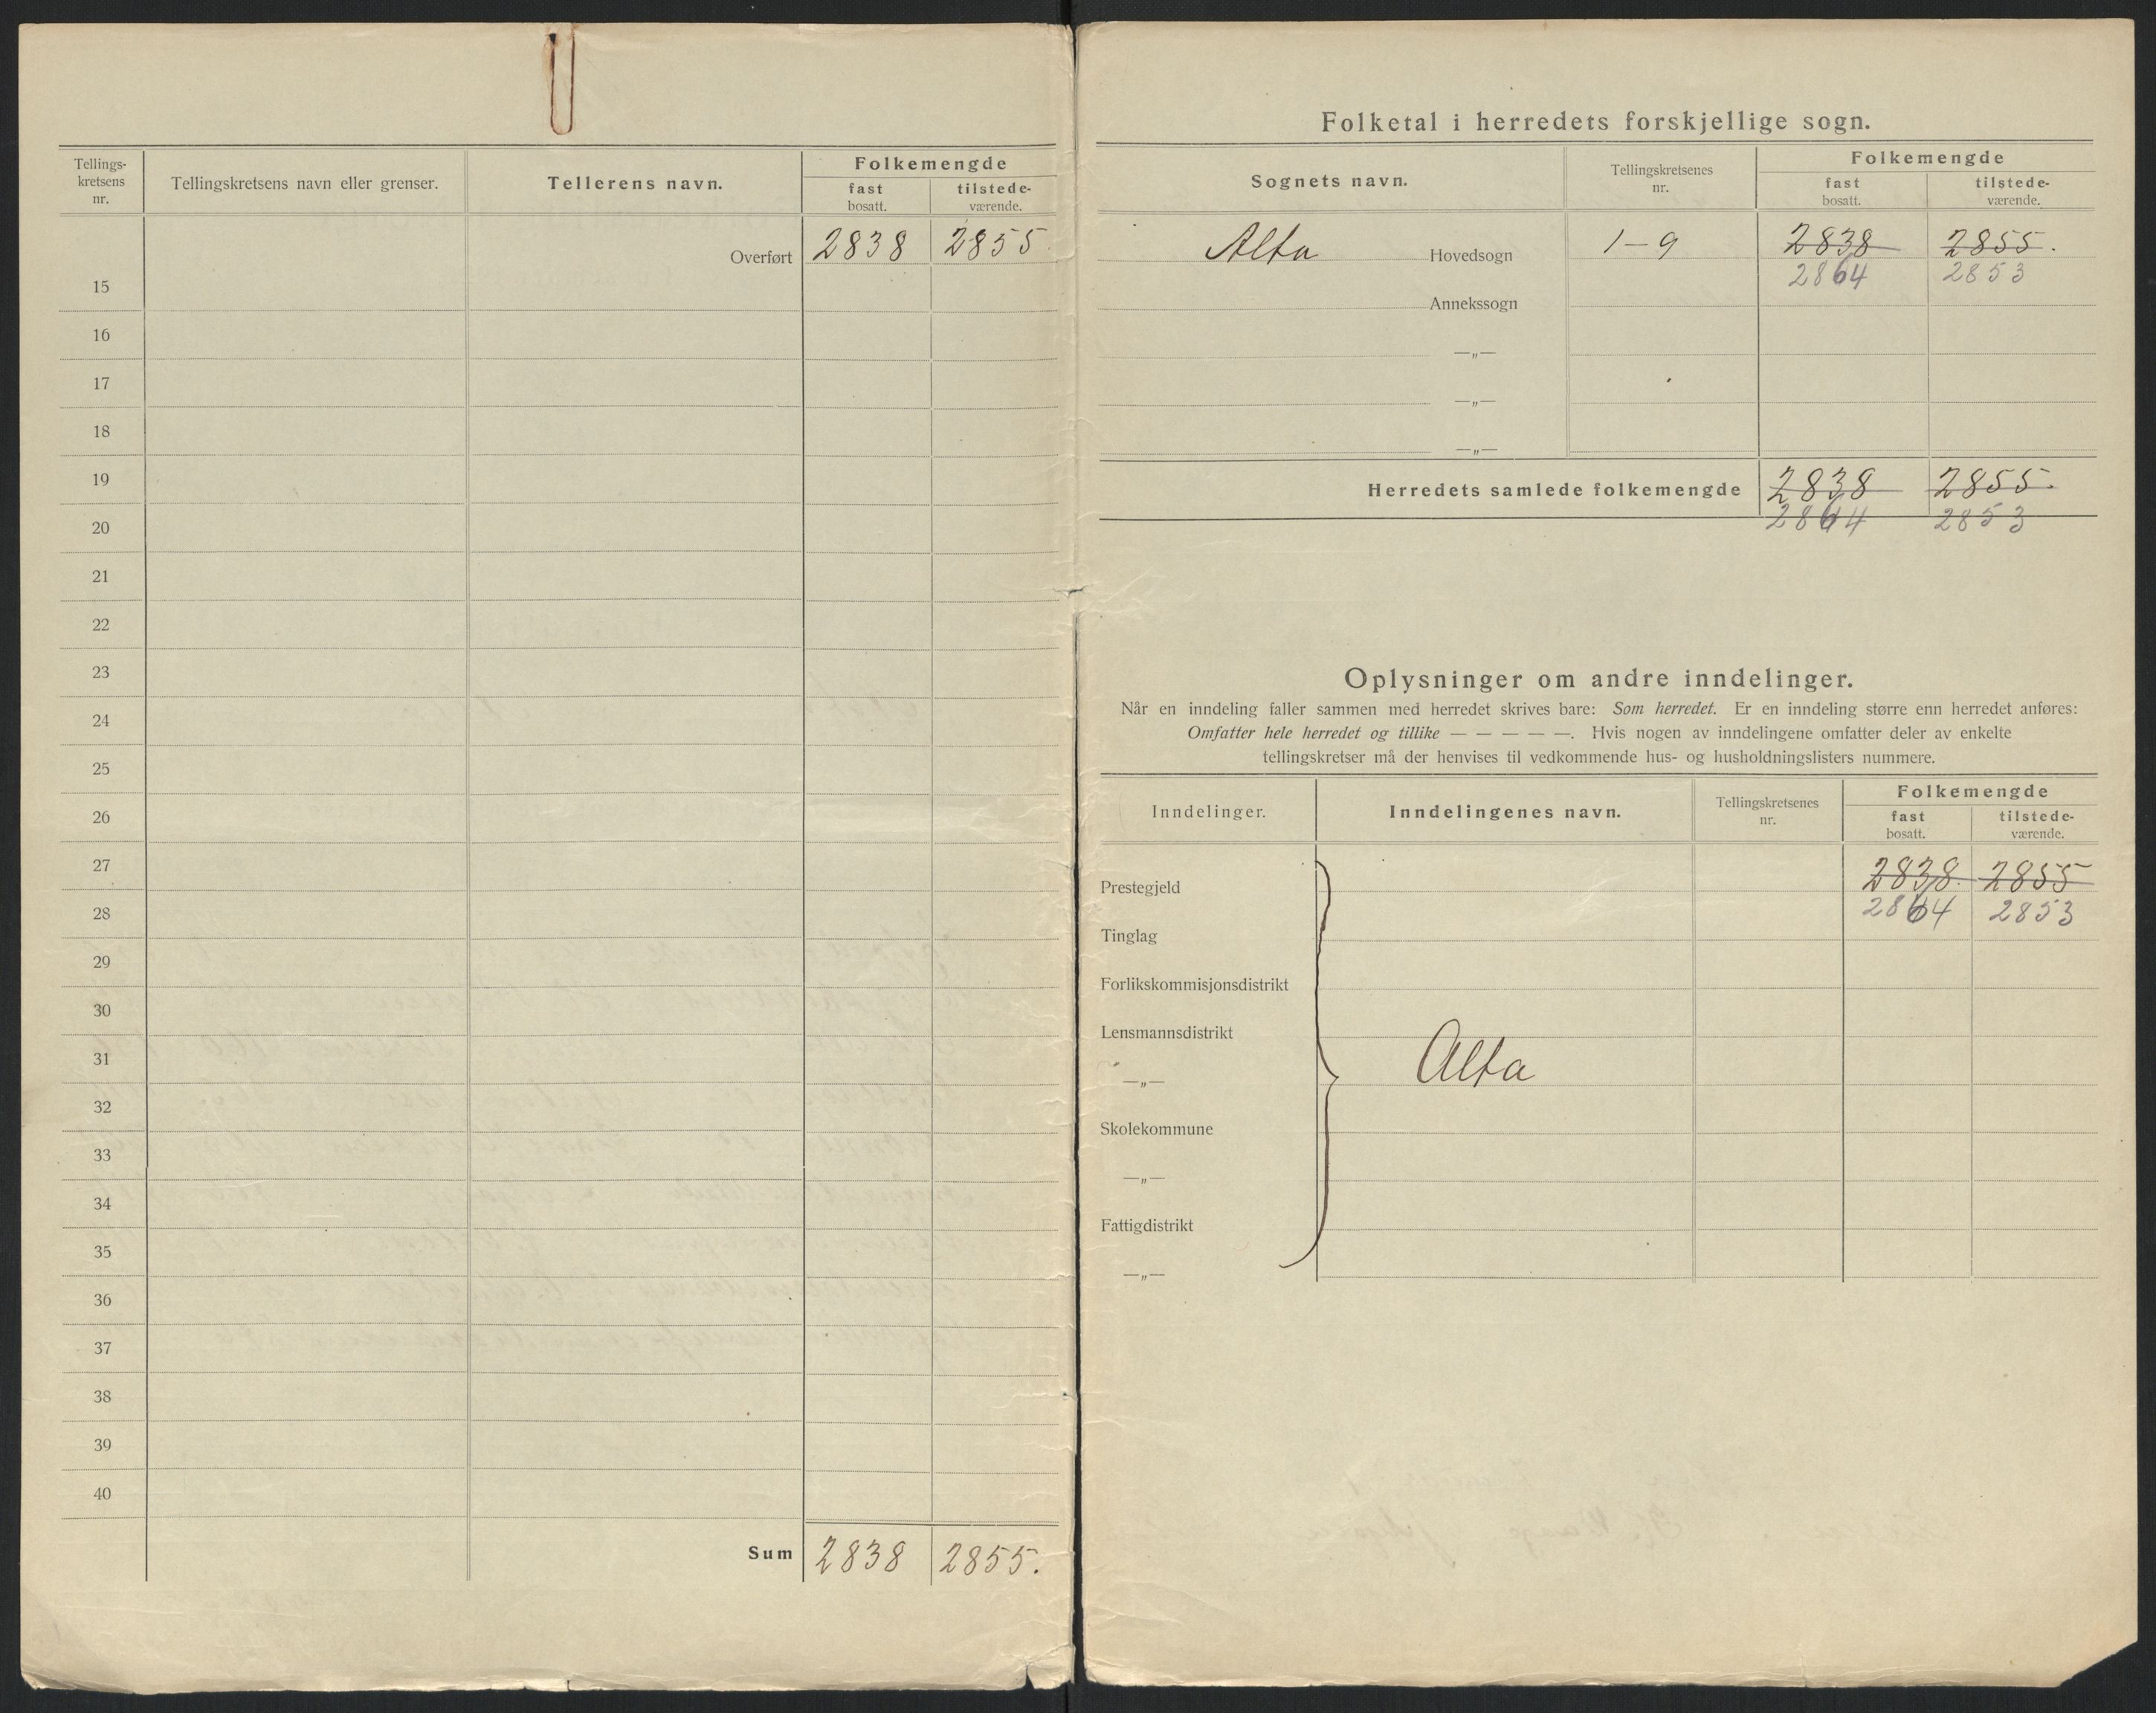 Tellings-
kretsens
nr.
Tellingskretsens navn eller grenser.
Tellerens navn.
Folkemengde
fast
bosatt.
tilstede-
værende.
Overført 2838 2855
15
16
17
18
19
20
21
22
23
24
25
26
27
28
29
30
31
32
33
34
35
36
37
38
39
40
Sum 2838 2855.
Folketal i herredets forskjellige sogn.
Sognets navn.
Tellingskretsenes
nr.
Folkemengde
fast
bosatt.
tilstede-
værende.
Alta Hovedsogn 1–9 2838 2855.
2864 2853
Annekssogn
—„—
—„—
—„—
Herredets samlede folkemengde 2838 2855.
2864 2853
Oplysninger om andre inndelinger.
Når en inndeling faller sammen med herredet skrives bare: Som herredet. Er en inndeling større enn herredet anføres:
Omfatter hele herredet og tillike — — — — —. Hvis nogen av inndelingene omfatter deler av enkelte
tellingskretser må der henvises til vedkommende hus- og husholdningslisters nummere.
Inndelinger.
Inndelingenes navn.
Tellingskretsenes
nr.
Folkemengde
fast
bosatt.
tilstede-
værende.
Prestegjeld 2838. 2855
2864 2853
Tinglag
Forlikskommisjonsdistrikt
Lensmannsdistrikt
—„— Alta
Skolekommune
—„—
Fattigdistrikt
—„—